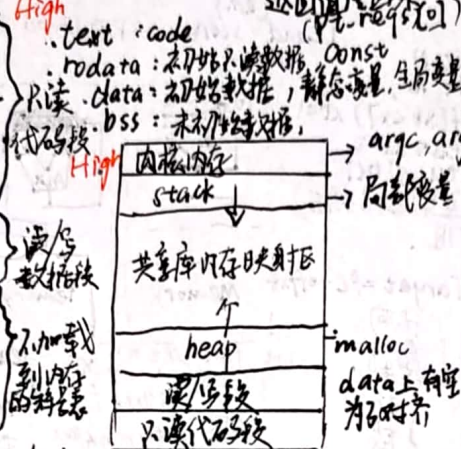 High
(pt_regs
.text : code
.rodata : 初始只读数据, const
.data : 初始数据, 静态变量, 全局变量
.bss : 未初始数据,
只读
代码段
High
内核内存
argc, ar
stack
局部变量
读/写
数据段
共享库内存映射区
不加载
到内存
的符号表
heap
malloc
读/写段
data上有空
为了对齐
只读代码段